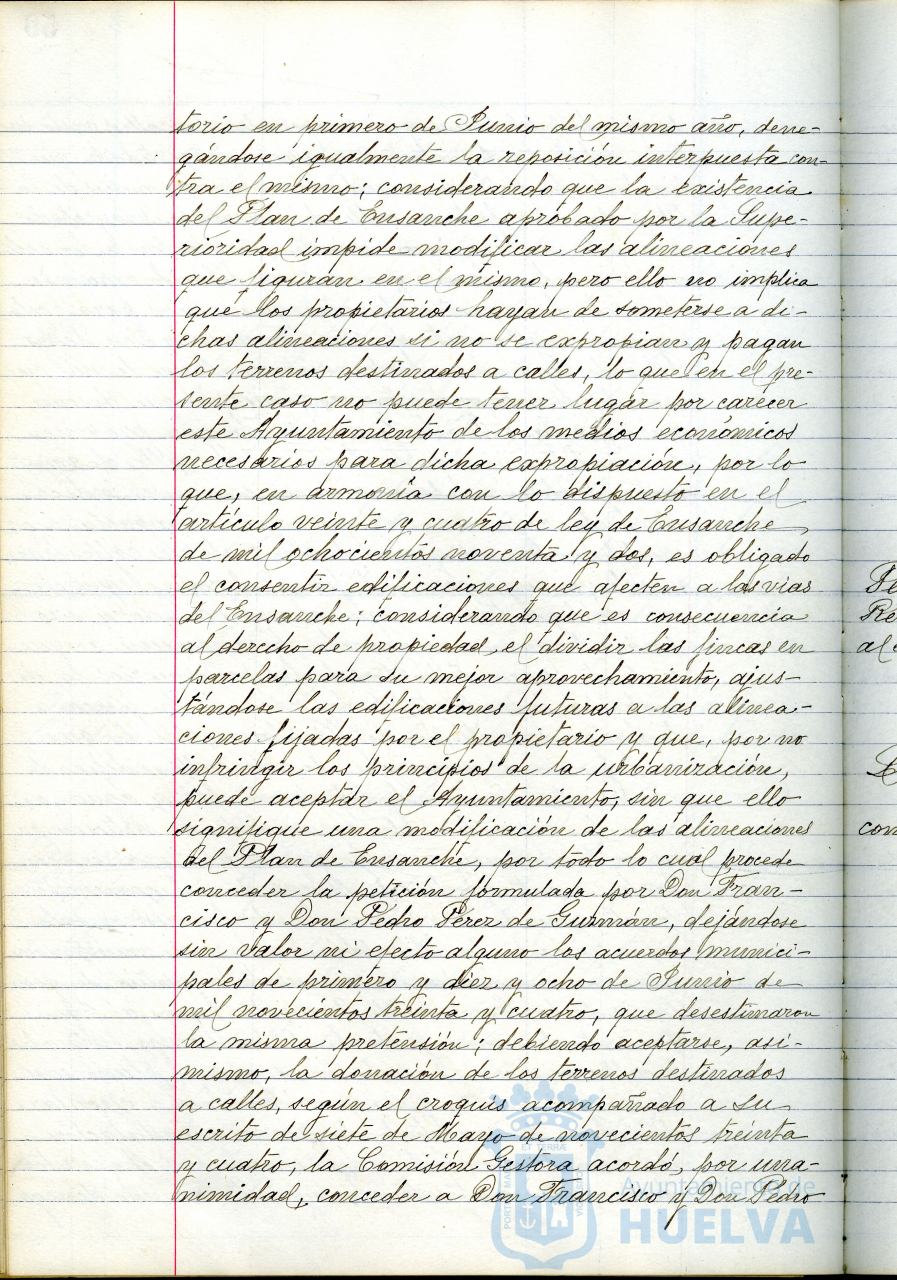 torio en primero de Junio del mismo año, dene-
gándose igualmente la reposición interpuesta con-
tra el mismo; considerando que la existencia
del Plan de Ensanche aprobado por la Supe-
rioridad impide modificar las alineaciones
que figuran en el mismo, pero ello no implica
que los propietarios hayan de someterse a di-
chas alineaciones si no se expropian y pagan
los terrenos destinados a calles, lo que en el pre-
sente caso no puede tener lugar por carecer
este Ayuntamiento de los medios económicos
necesarios para dicha expropiación, por lo
que, en armonía con lo dispuesto en el
artículo veinte y cuatro de ley de Ensanche
de mil ochocientos noventa y dos, es obligado
el consentir edificaciones que afecten a las vías
del Ensanche; considerando que es consecuencia
al derecho de propiedad el dividir las fincas en
parcelas para su mejor aprovechamiento, ajus-
tándose las edificaciones futuras a las alinea-
ciones fijadas por el propietario y que, por no
infringir los principios de la urbanización,
puede aceptar el Ayuntamiento, sin que ello
signifique una modificación de las alineaciones
del Plan de Ensanche, por todo lo cual procede
conceder la petición formulada por Don Fran-
cisco y Don Pedro Pérez de Guzmán, dejándose
sin valor ni efecto alguno los acuerdos munici-
pales de primero y diez y ocho de Junio de
mil novecientos treinta y cuatro, que desestimaron
la misma pretensión; debiendo aceptarse, asi-
mismo, la donación de los terrenos destinados
a calles, según el croquis acompañado a su
escrito de siete de Mayo de novecientos treinta
y cuatro, la Comisión Gestora acordó, por una-
nimidad, conceder a Don Francisco y Don Pedro
Ayuntamiento de
HUELVA